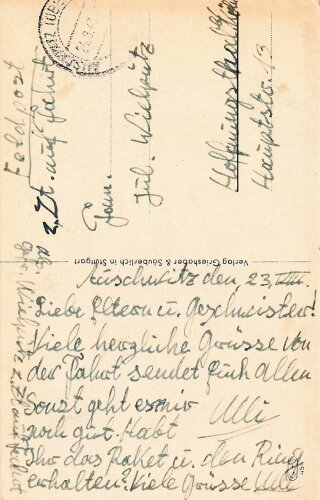 Feldpost
z. Zt. auf Fahrt
Fam.
Jul. Wielpütz
Hoffnungsthal
Hauptstr. 13
Verlag Grieshaber & Säuberlich in Stuttgart
Auschwitz den, 23. VIII.
Liebe Eltern u. Geschwister!
Viele herzliche Grüsse von
der Fahrt sendet Euch Allen
Sonst geht es mir Ulli
noch gut. Habt
Ihr das Paket u. den Ring
erhalten. Viele Grüsse Ulli
Abs.
Wielpütz z. Zt. auf Fahrt